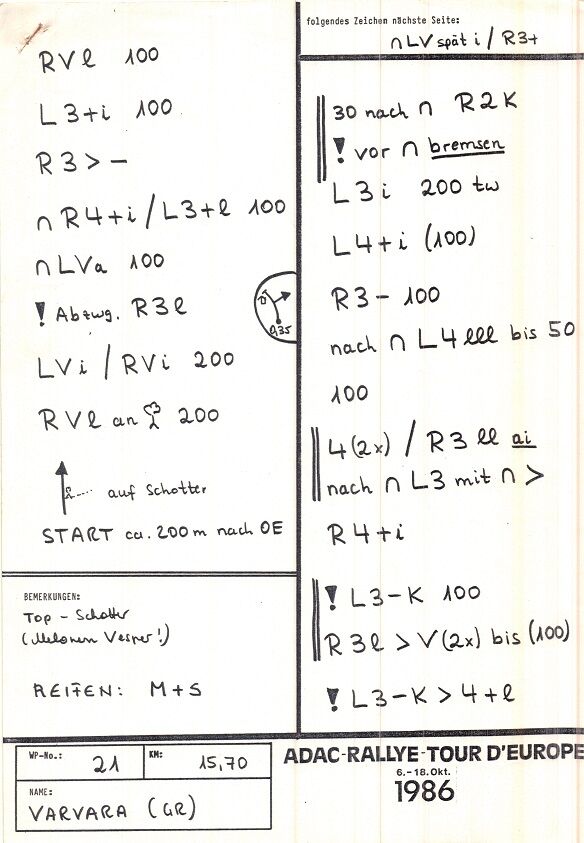 RVl 100
L3+i 100
R3 > –
∩ R4+i / L3+l 100
∩ LVa 100
! Abzwg. R3l
0,35
LVi / RVi 200
RVl an 200
auf Schotter
START ca. 200m nach OE
BEMERKUNGEN:
Top – Schotter
(Melonen Vesper!)
REIFEN: M+S
folgendes Zeichen nächste Seite:
∩ LV spät i / R3+
30 nach ∩ R2K
! vor ∩ bremsen
L3i 200 tw
L4+i (100)
R3– 100
nach ∩ L4lll bis 50
100
4(2x) / R3ll ai
nach ∩ L3 mit ∩ >
R4+i
! L3–K 100
R3l > V(2x) bis (100)
! L3–K > 4+l
WP-No.: 21 KM: 15,70
NAME:
VARVARA (GR)
ADAC-RALLYE-TOUR D'EUROPE
6.-18.Okt.
1986